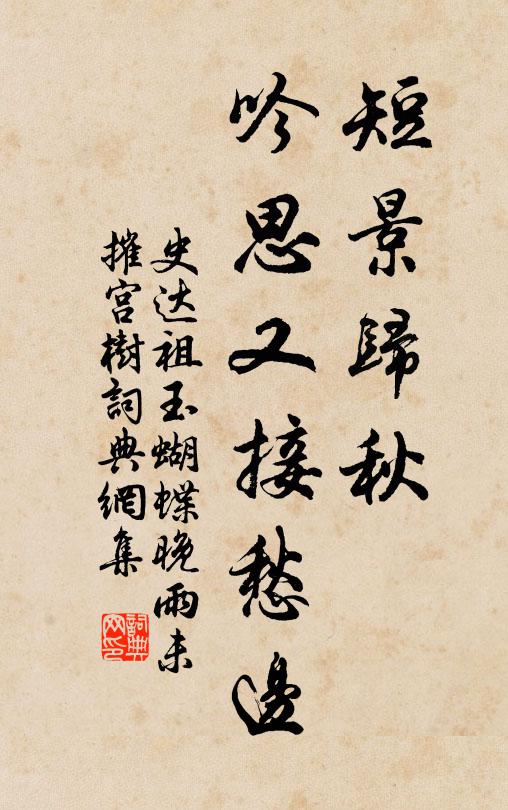 短景歸秋
吟思又接愁邊
史达祖玉蝴蝶晚雨未
摧宮樹詞典網集
詞典网印